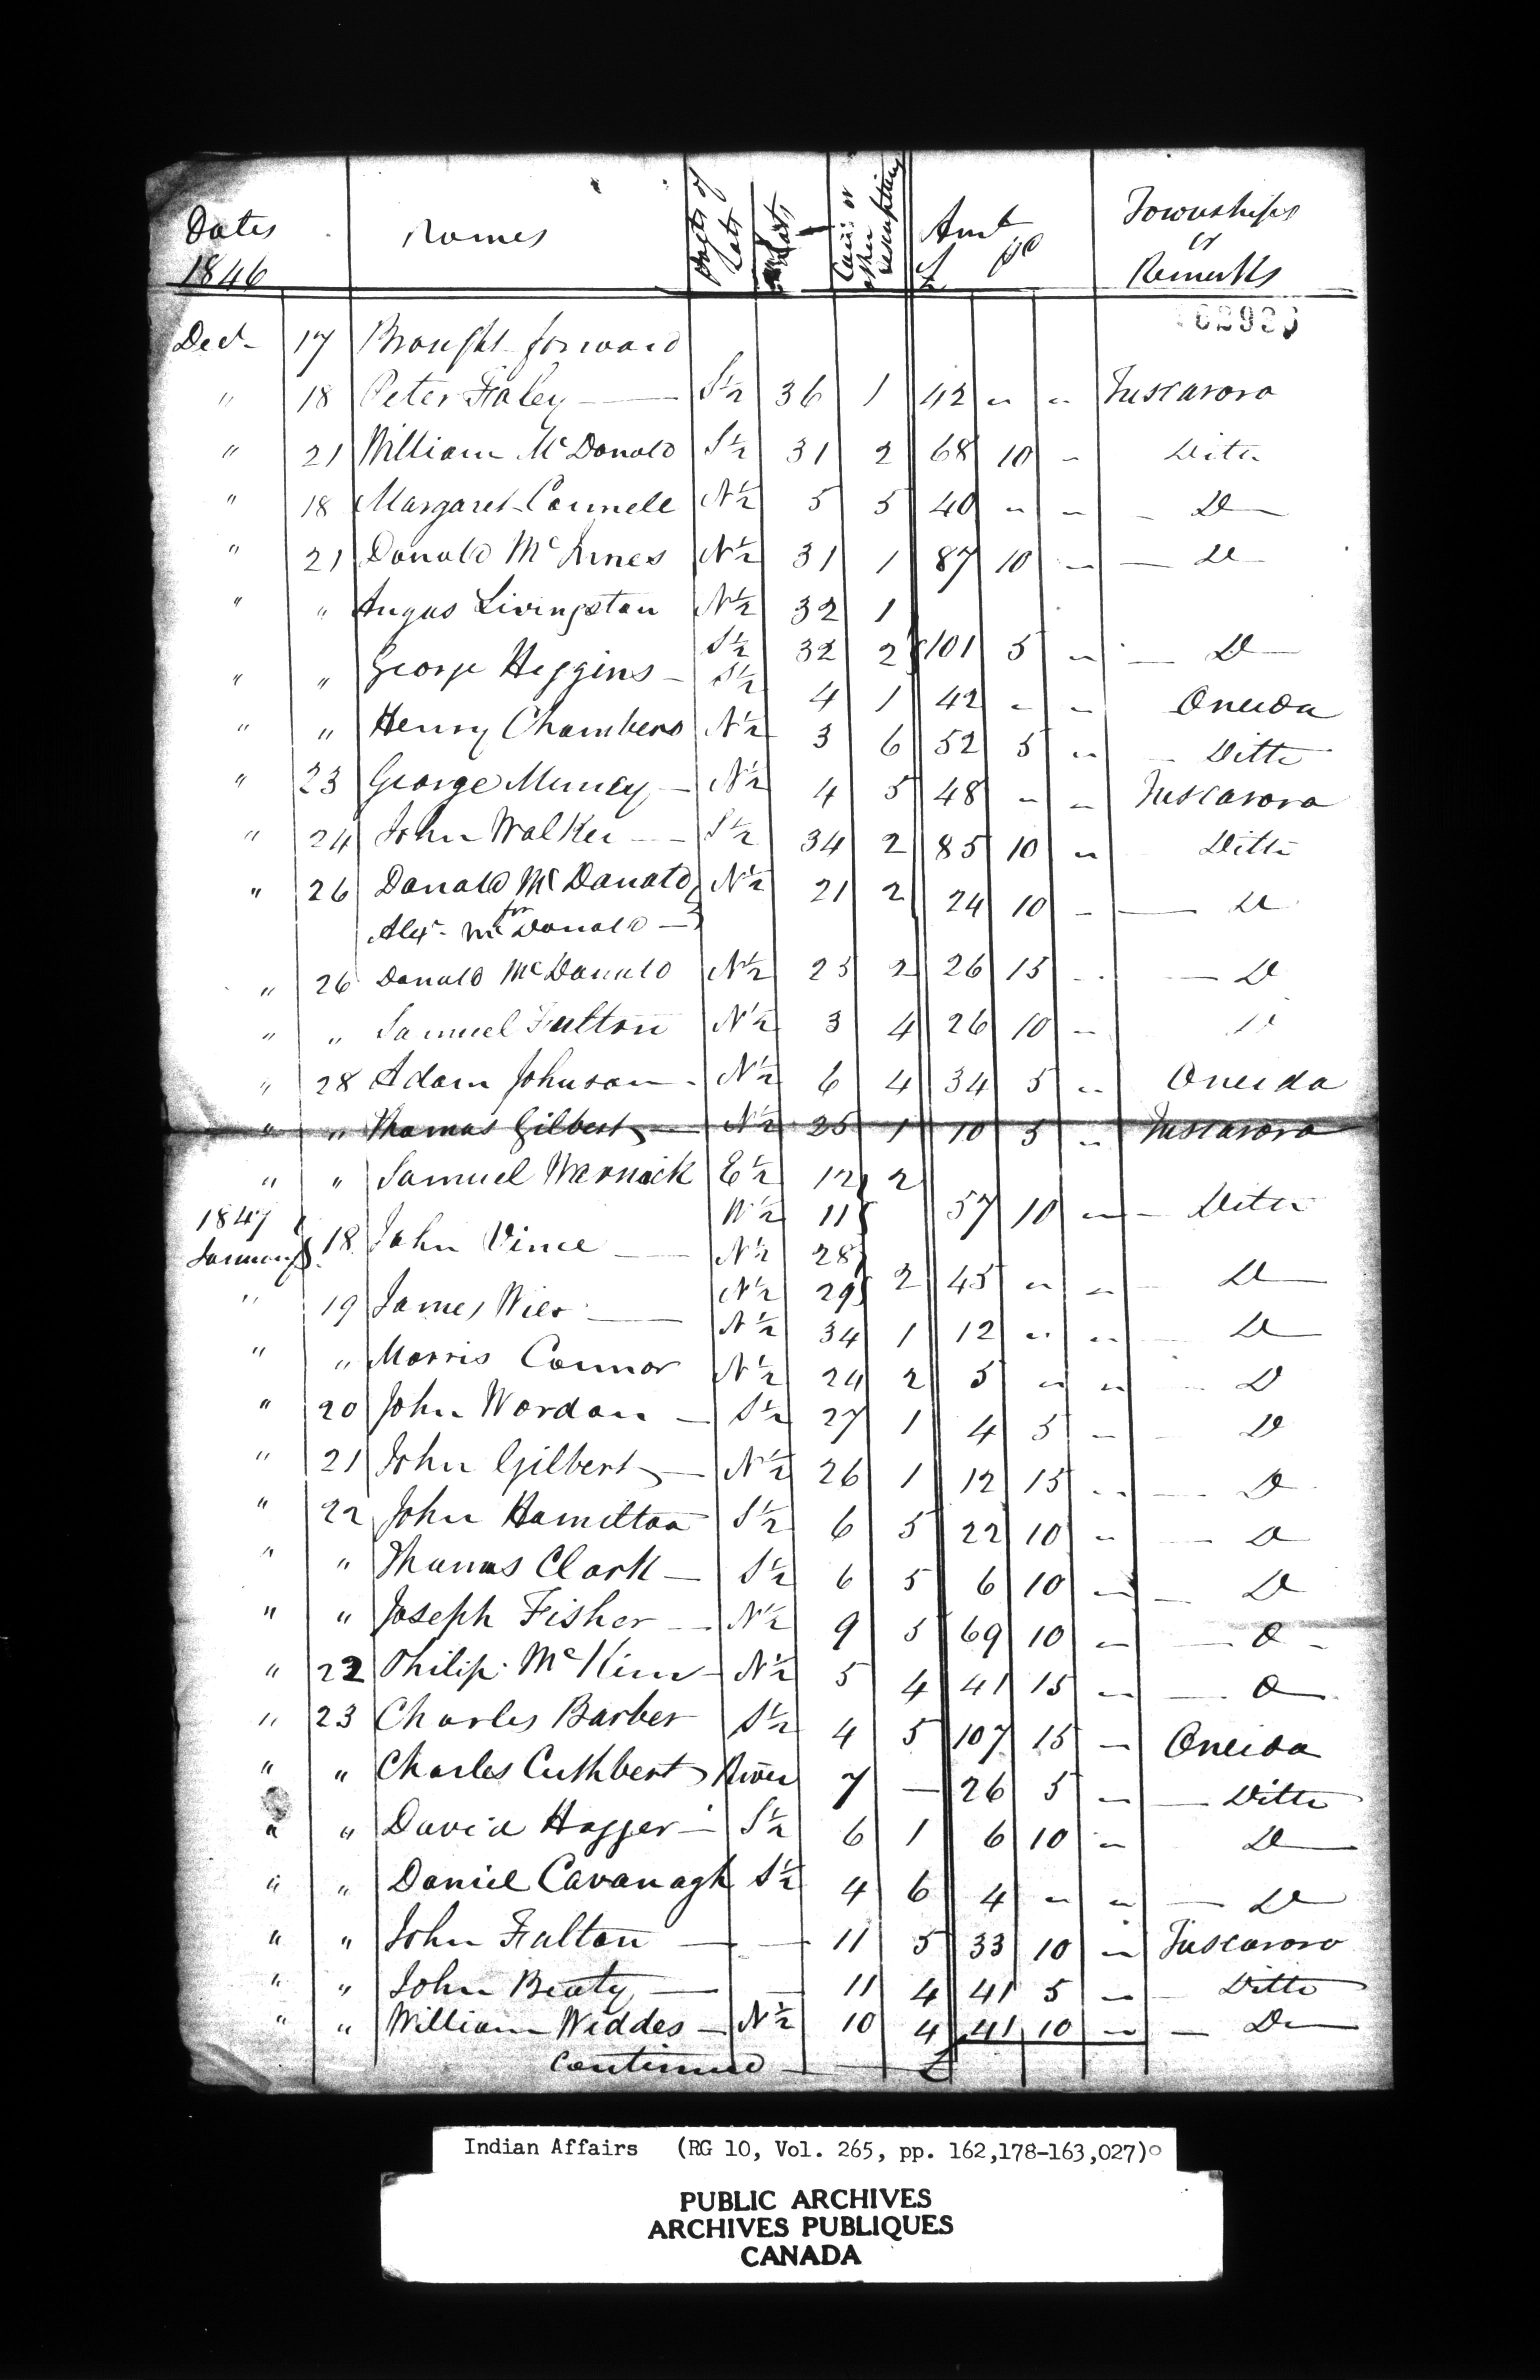 Dates Names Parts of Lots Lots Cons or other description Amt Townships
or
1846 £ Remarks
Decr 17 Brought forward
" 18 Peter Haley — S½ 36 1 42 " " Tuscarora
" 21 William McDonald S½ 31 2 68 10 - Ditto
" 18 Margaret Connell N½ 5 5 40 " - D
" 21 Donald McInnes N½ 31 1 87 10 - D
" " Angus Livingston N½ 32 1
S½ 32 2 101 5 " D
" " George Higgins - S½ 4 1 42 - - Oneida
" " Henry Chambers N½ 3 6 52 5 " Ditto
" 23 George Muncey - N½ 4 5 48 - - Tuscarora
" 24 John Walker - S½ 34 2 85 10 " Ditto
" 26 Donald McDonald N½ 21 2 24 10 - D
for
Alexr McDonald —
" 26 Donald McDonald N½ 23 2 26 15 - D
" " Samuel Fulton N½ 3 4 26 10 - D
" 28 Adam Johnson - N½ 6 4 34 5 " Oneida
" " Thomas Gilbert — N½ 25 1 10 5 " Tuscarora
" " Samuel Warnick E½ 12 2
W½ 11 57 10 " Ditto
1847
January 18 John Vince — N½ 28
N½ 29 2 45 " " D
" 19 James Wier — N½ 34 1 12 " " D
" " Morris Connor N½ 24 2 5 " " D
" 20 John Wordan — S½ 27 1 4 5 - D
" 21 John Gilbert — N½ 26 1 12 15 " D
" 22 John Hamilton S½ 6 5 22 10 " D
" " Thomas Clark — S½ 6 5 6 10 - D
" " Joseph Fisher — N½ 9 5 69 10 - D
" 22 Philip McKim - N½ 5 4 41 15 - D
" 23 Charles Barber S½ 4 5 107 15 - Oneida
" " Charles Cuthbert River 7 — 26 5 - Ditto
" " David Hagger - S½ 6 1 6 10 - D
" " Daniel Cavanagh S½ 4 6 4 " " D
" " John Fulton — — 11 5 33 10 - Tuscarora
" " John Beaty — — 11 4 41 5 - Ditto
" " William Widdes — N½ 10 4 41 10 - D
Continued — £
Indian Affairs (RG 10, Vol. 265, pp. 162,178-163,027)
PUBLIC ARCHIVES
ARCHIVES PUBLIQUES
CANADA